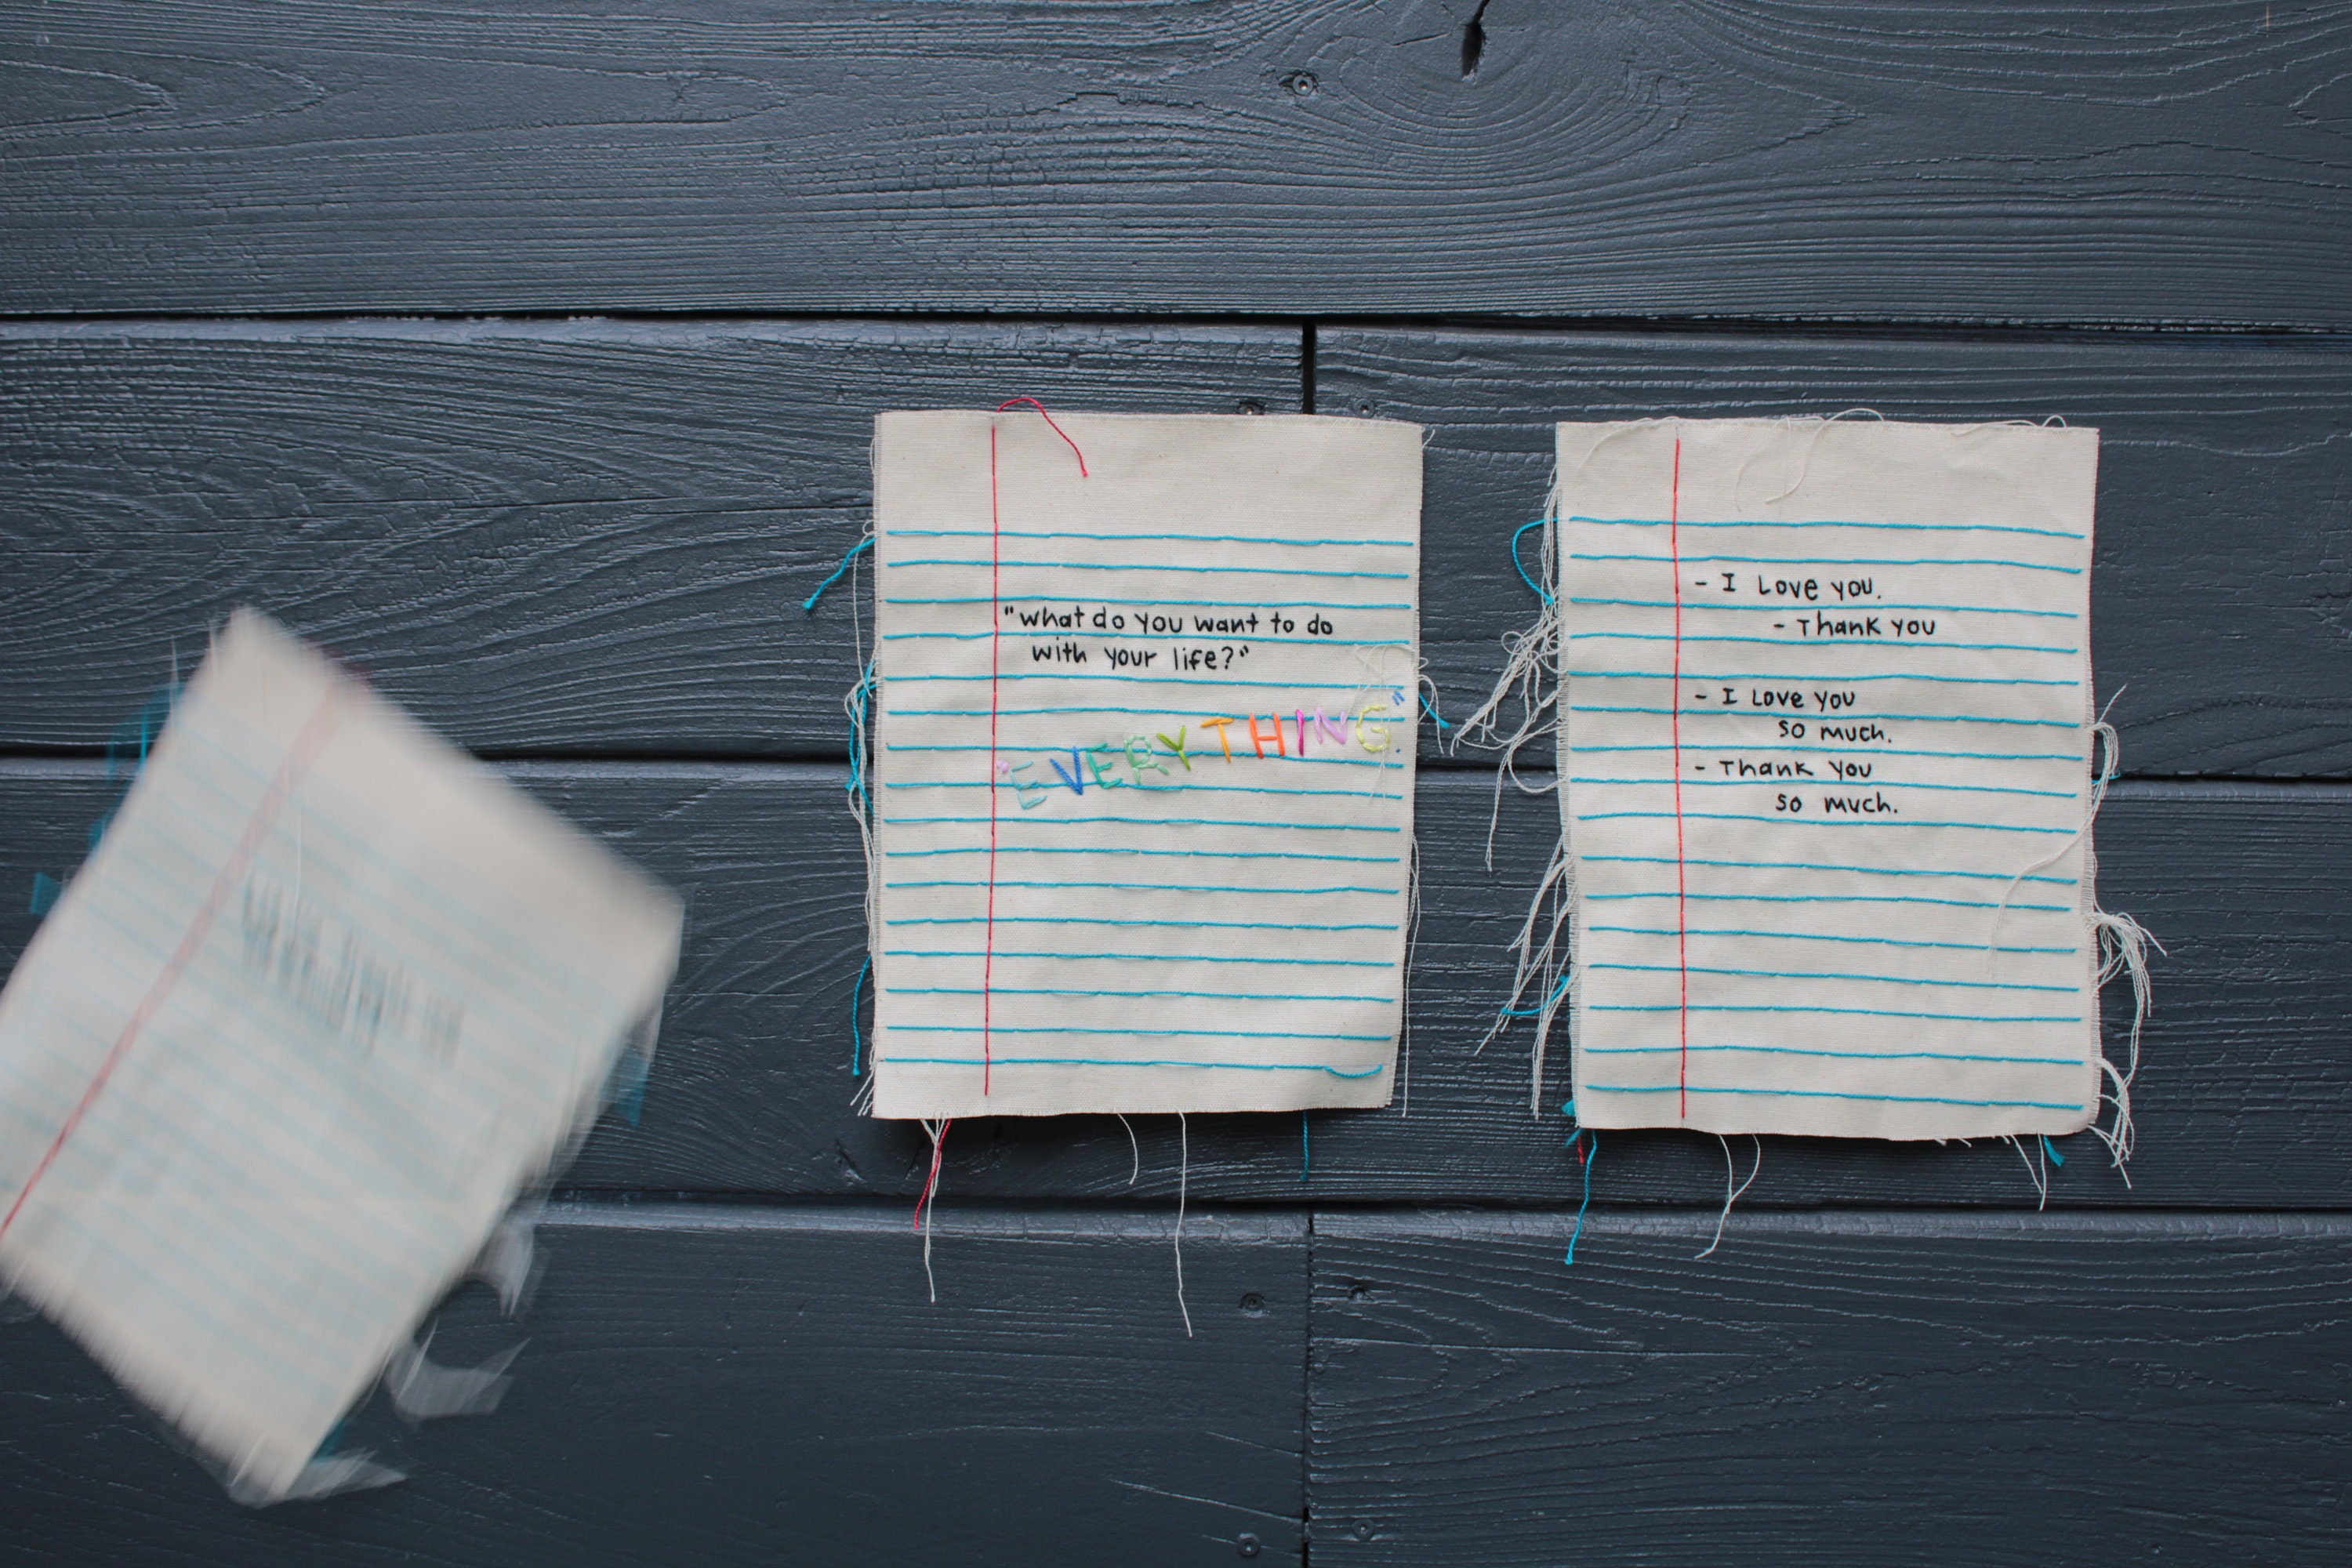 "what do you want to do
with your life?"
"EVERYTHING."
- I Love you.
- Thank you
- I Love you
so much.
- Thank you
so much.